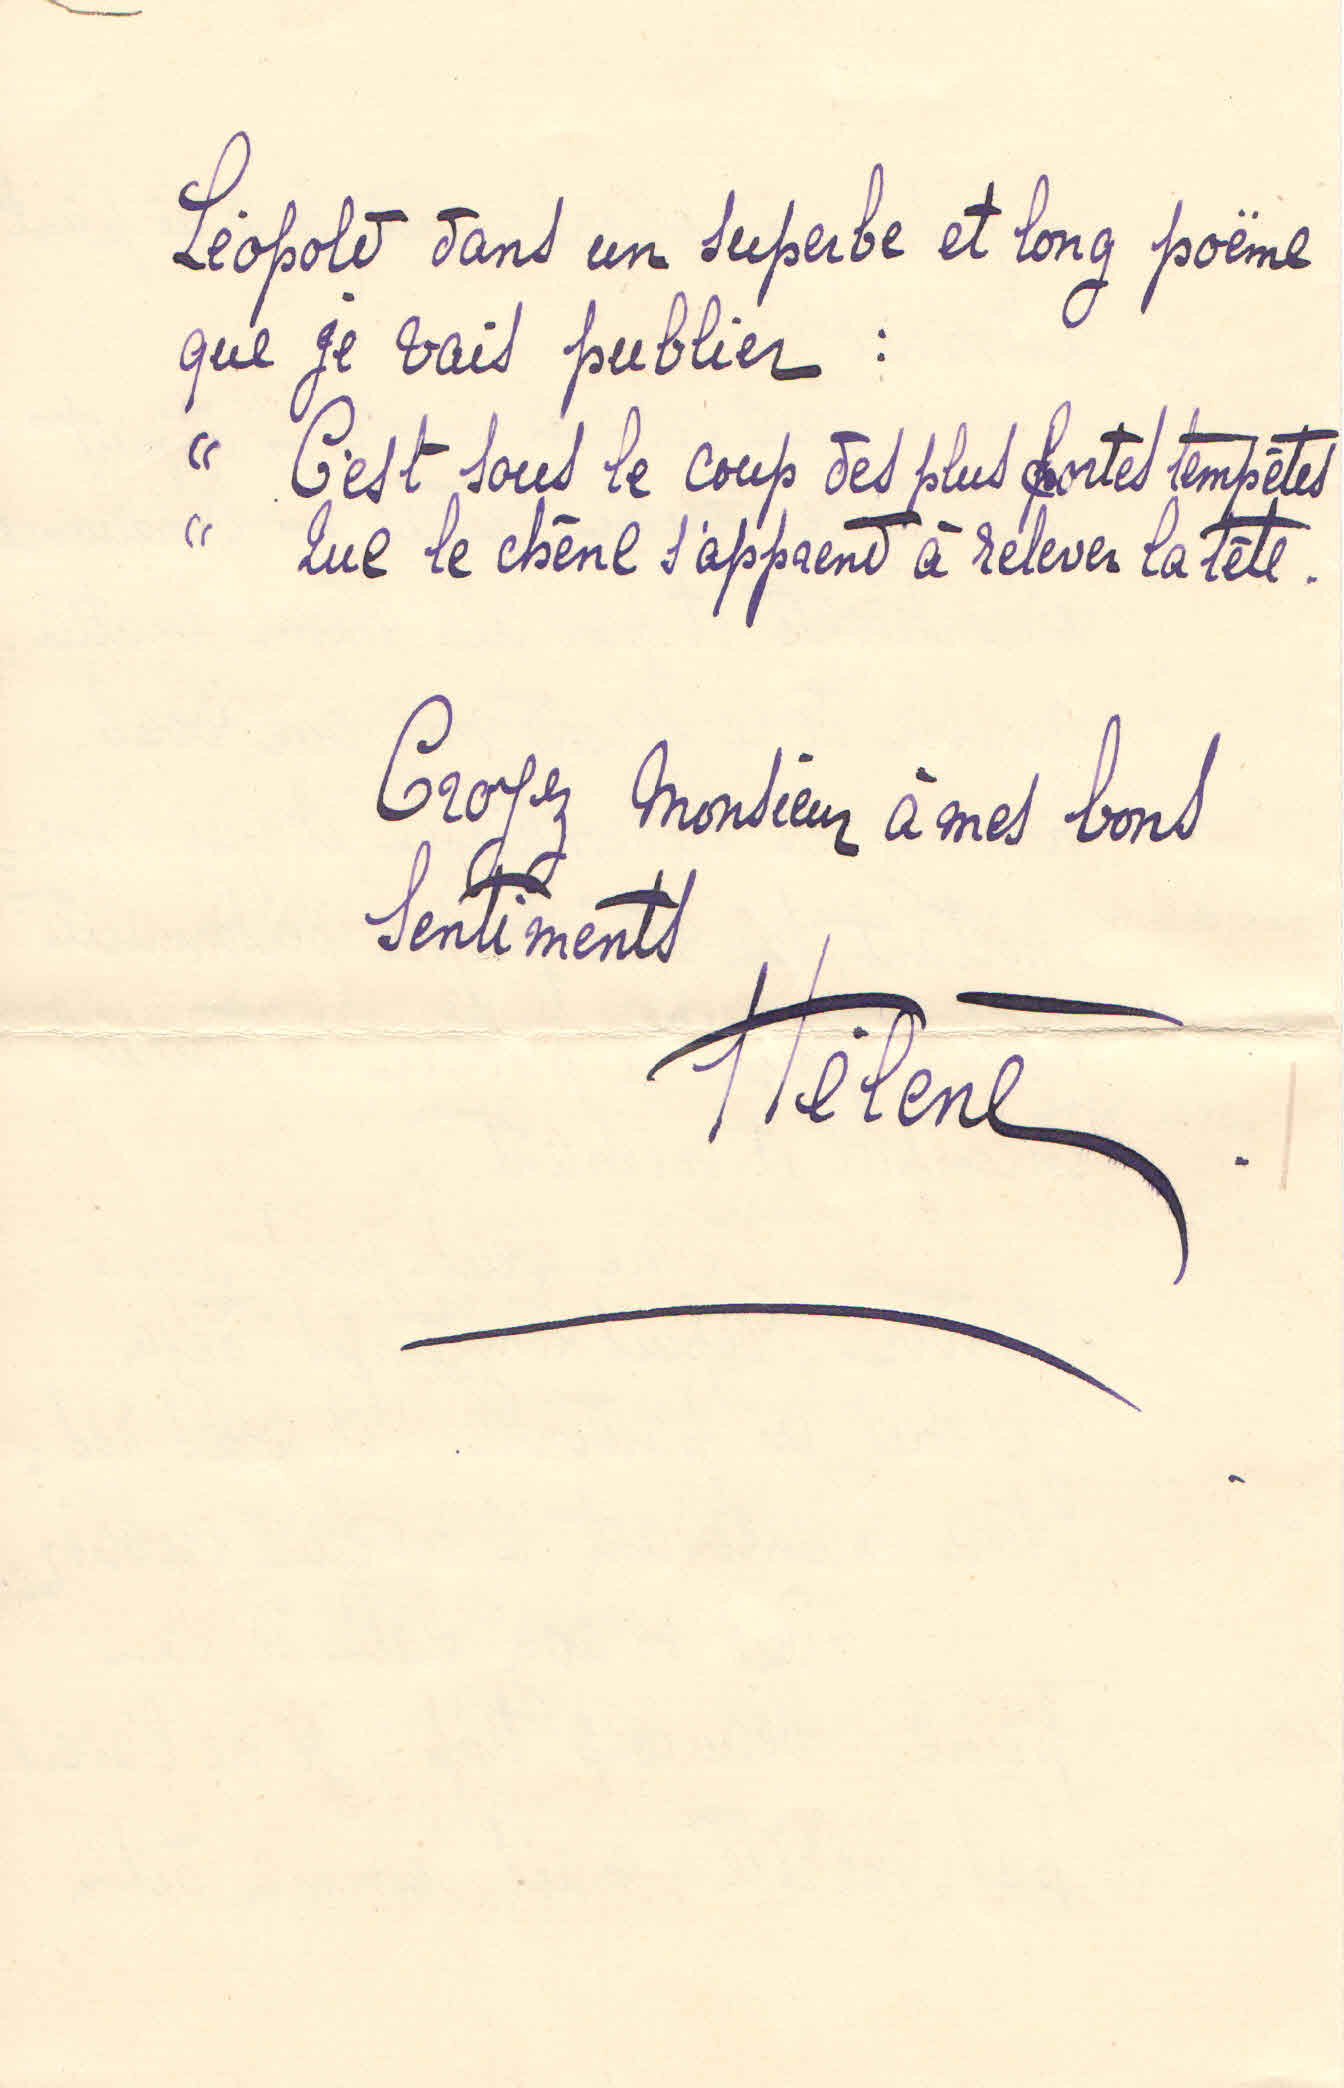 Léopold dans un superbe et long poëme
que je vais publier :
" C'est sous le coup des plus fortes tempêtes
" Que le chêne s'apprend à relever la tête.
Croyez Monsieur à mes bons
sentiments
Hélène